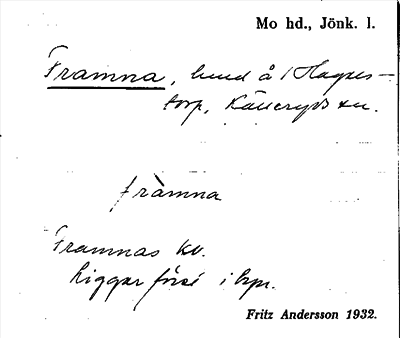 Mo hd., Jönk. l.
Framna, hmd å Hages-
torp, Källeryds sn.
fràmna
Framnas kv.
Ligger förs i byn.
Fritz Andersson 1932.